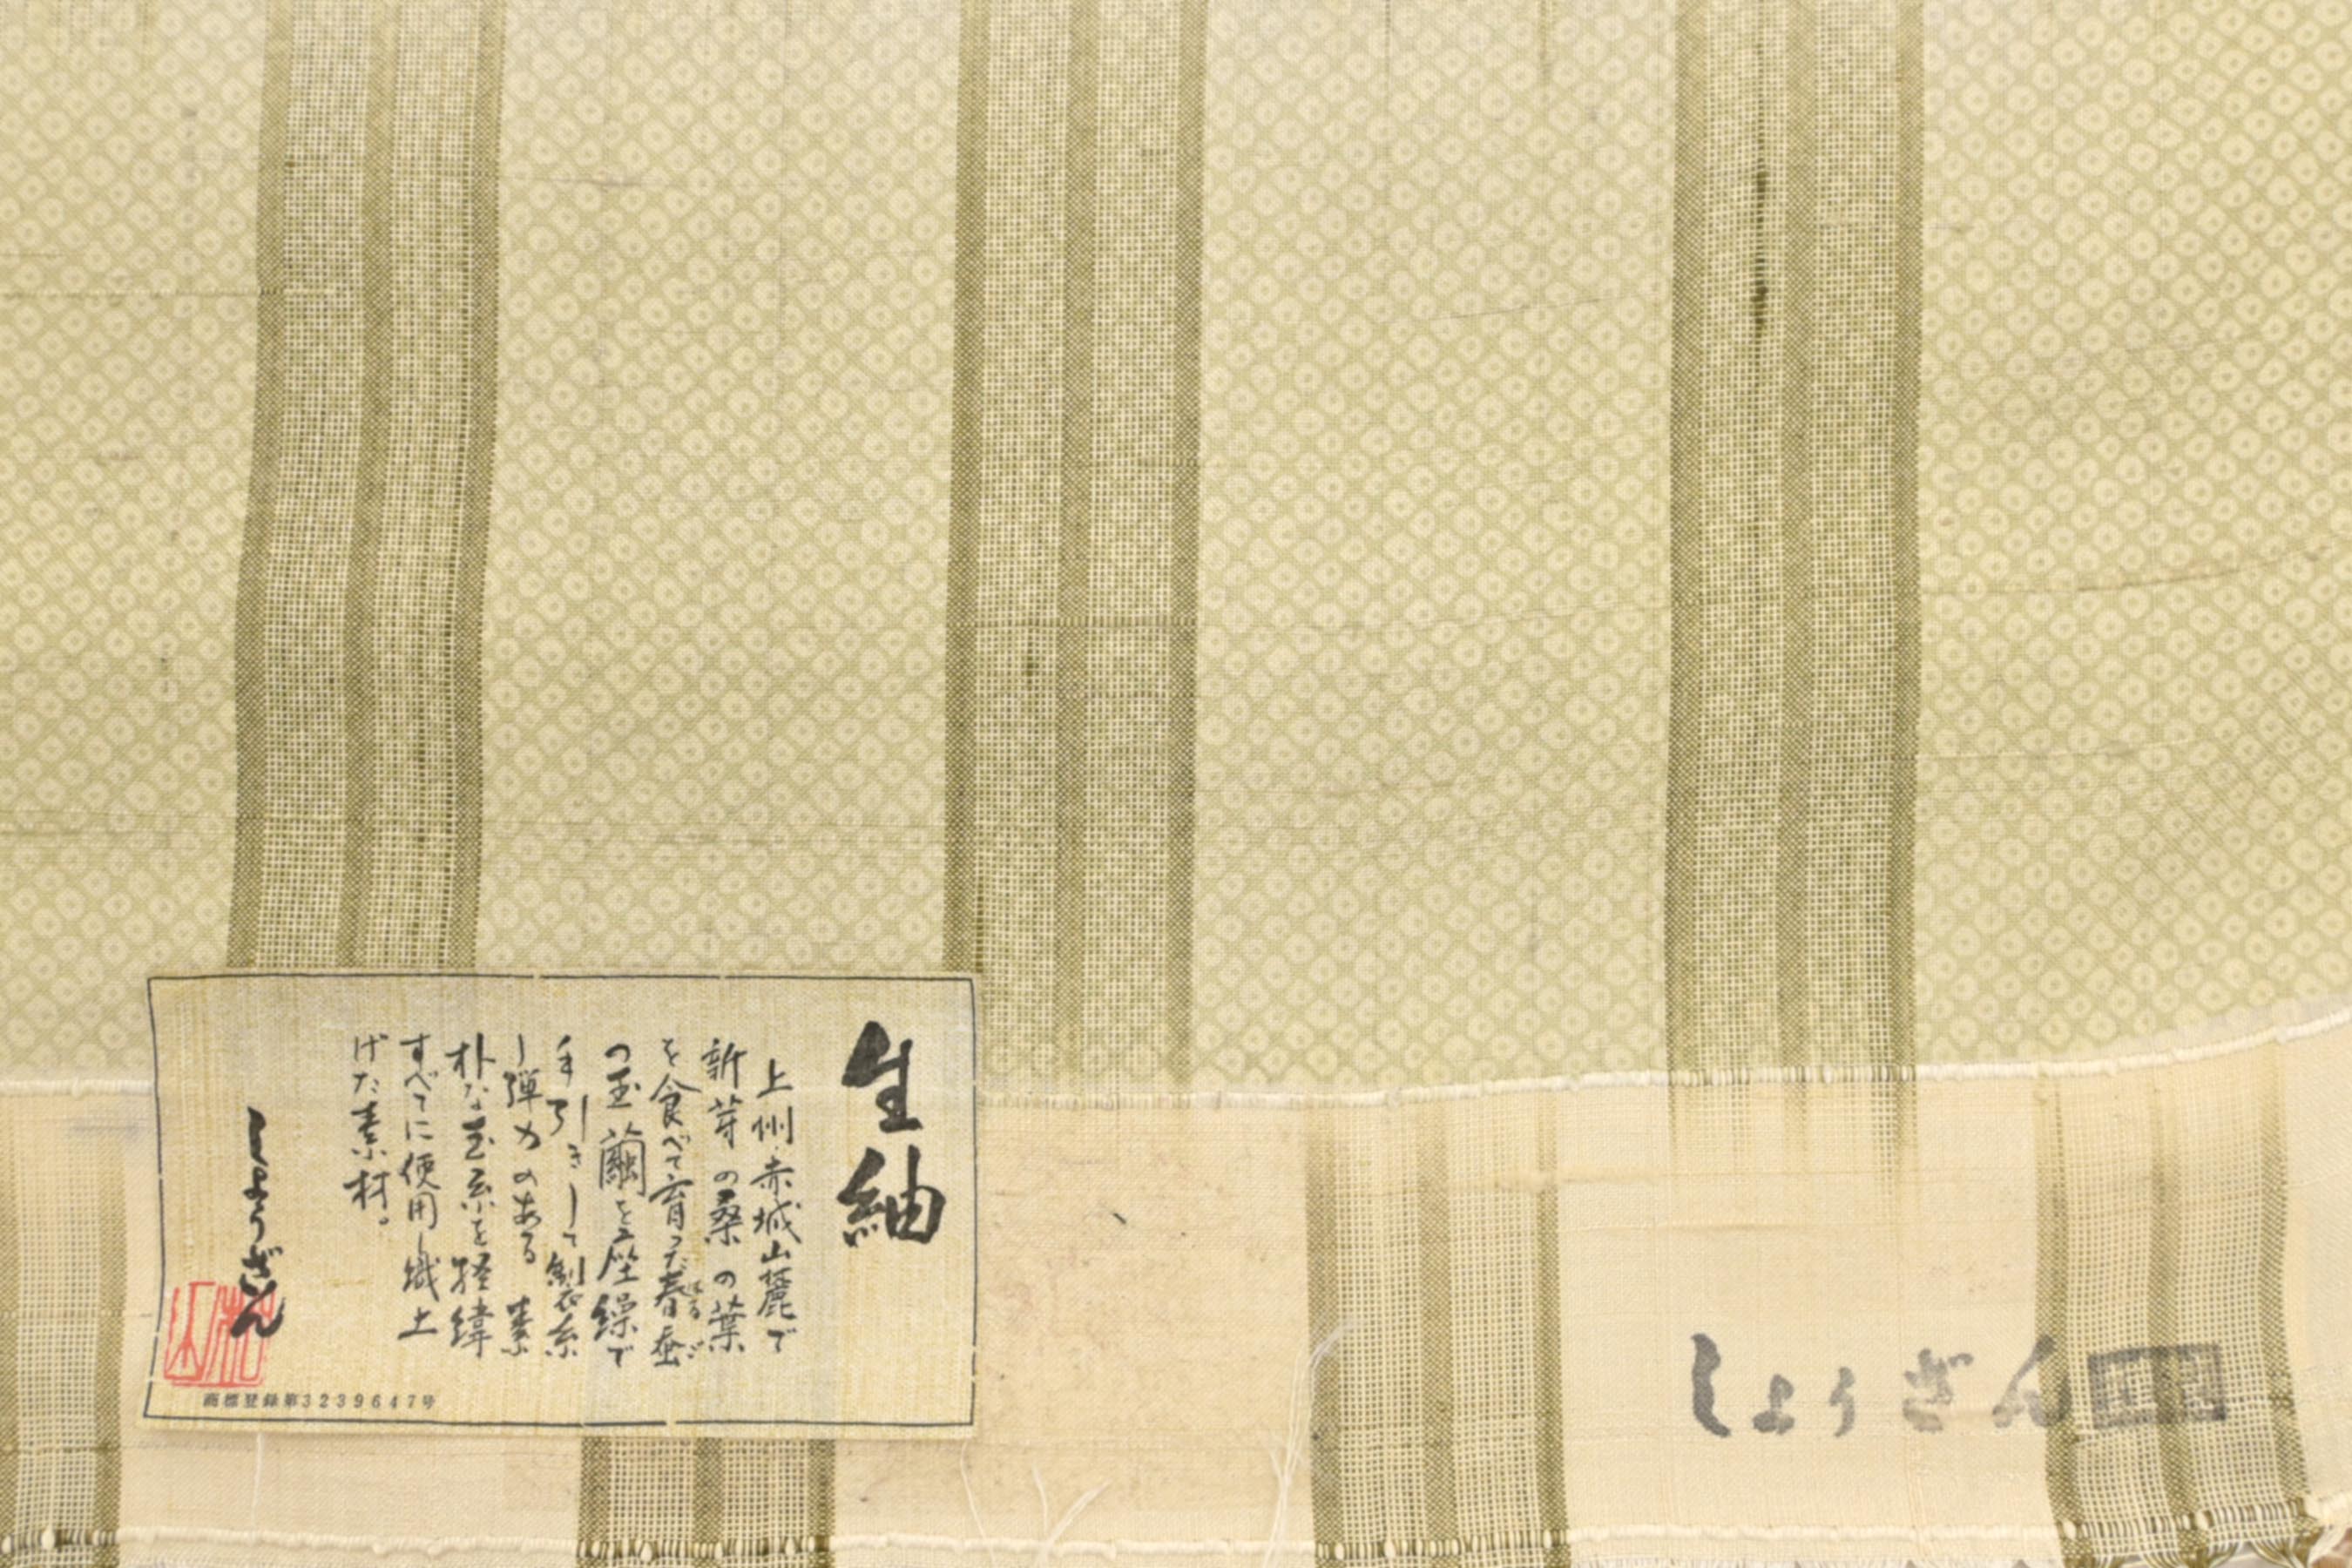 生紬
上州・赤城山麓で
新芽の桑の葉
を食べて育った春蚕
はるご
の玉繭を座繰で
手引きして製糸
し弾力のある素
朴な玉糸を経緯
すべてに使用し織上
げた素材。
しょうざん
商標登録第3239647号
しょうざん